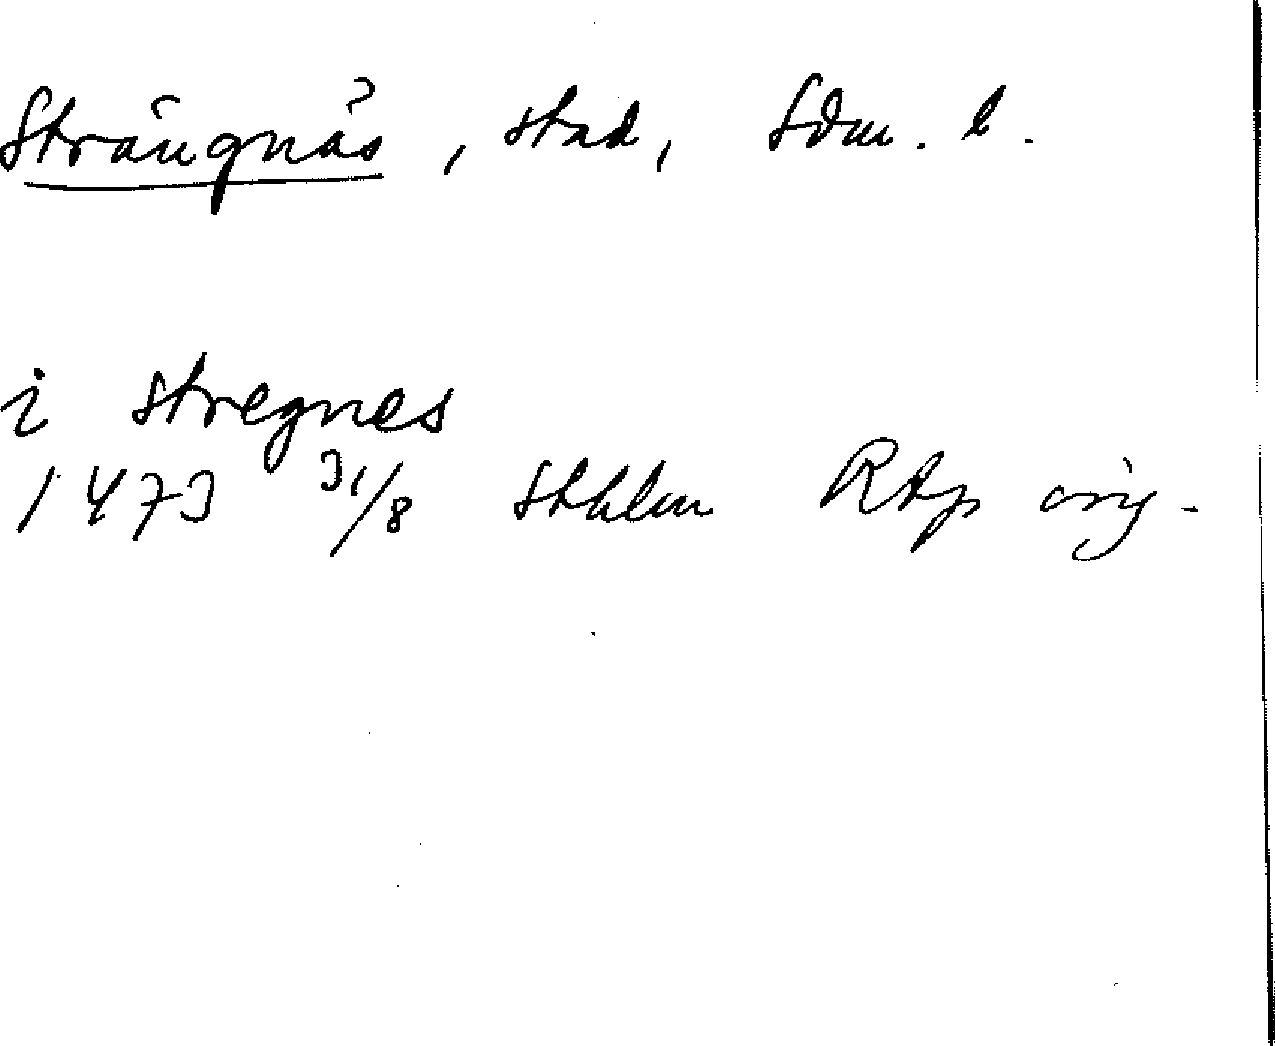 Strängnäs, stad, Sdm. l.
i stregnes
1473 31/8 Sthlm RAp orig.